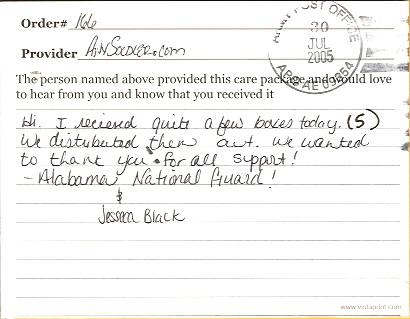 Order# 166
Provider AnySoldier.com
ARMY POST OFFICE
30
JUL
2005
APO AE 09354
The person named above provided this care package and would love
to hear from you and know that you received it
Hi. I recieved quite a few boxes today. (5)
We distubuted them out. We wanted
to thank you for all support!
- Alabama National Guard!
&
Jessica Black
www.vistaprint.com